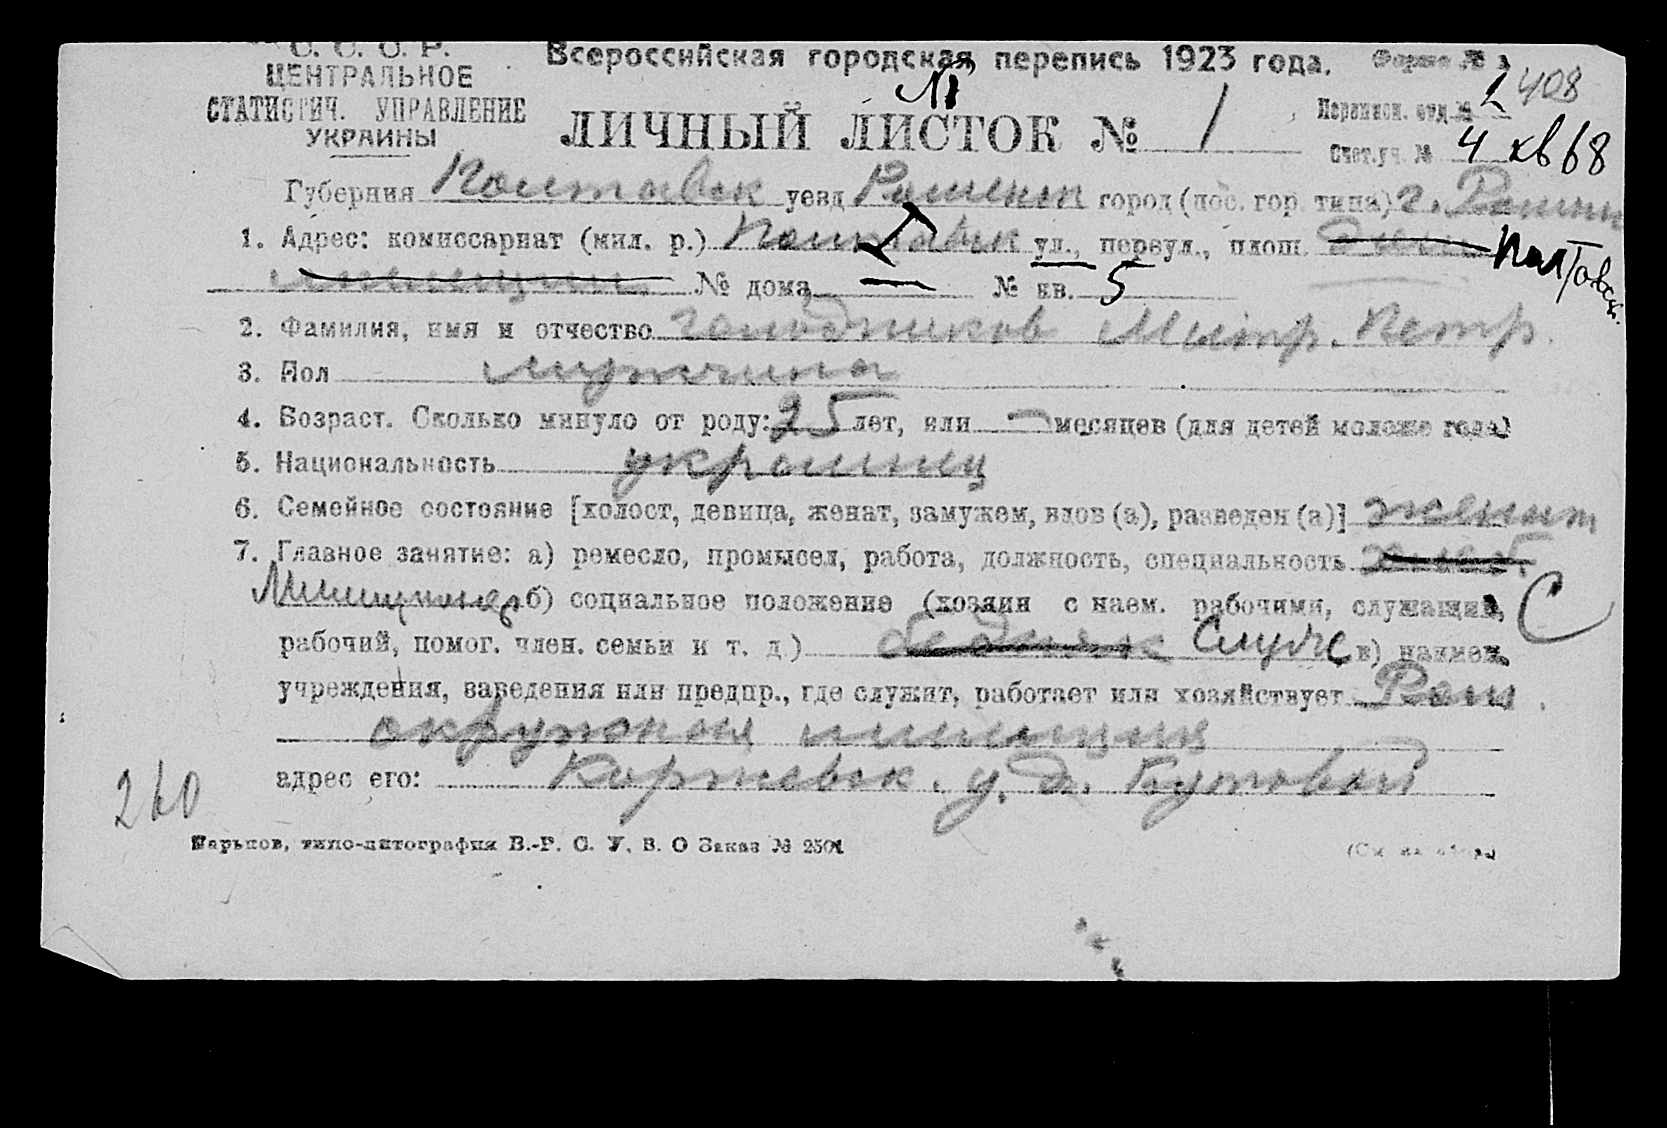 С. С. С. Р.
ЦЕНТРАЛЬНОЕ
СТАТИСТИЧ. УПРАВЛЕНИЕ
УКРАИНЫ
Всероссийская городская перепись 1923 года.
Форма №
408
ЛИЧНЫЙ ЛИСТОК № 1
М
Переписн. отд. № 2
Счет. уч. № 4 кв 68
Губерния Полтавск уезд Роменск город (пос. гор. типа) г. Ромны
1. Адрес: комиссариат (мил. р.) Полтавск ул., переул., площ. Полтовск.
№ дома — № кв. 5
2. Фамилия, имя и отчество Голодников Петр.
3. Пол мужчина
4. Возраст. Сколько минуло от роду: 25 лет, или — месяцев (для детей моложе года)
5. Национальность украинец
6. Семейное состояние [холост, девица, женат, замужем, вдов (а), разведен (а)] женат
7. Главное занятие: а) ремесло, промысел, работа, должность, специальность
Милиционер б) социальное положение (хозяин с наем. рабочими, служащий, С
рабочий, помог. член. семьи и т. д.) бедняк Служ в) наимен.
учреждения, заведения или предпр., где служит, работает или хозяйствует Ром
окружная милиция
адрес его: Коржевск. у. д.
260
Харьков, типо-литография В.-Р. С. У. В. О Заказ № 2501
(См. на обор.)